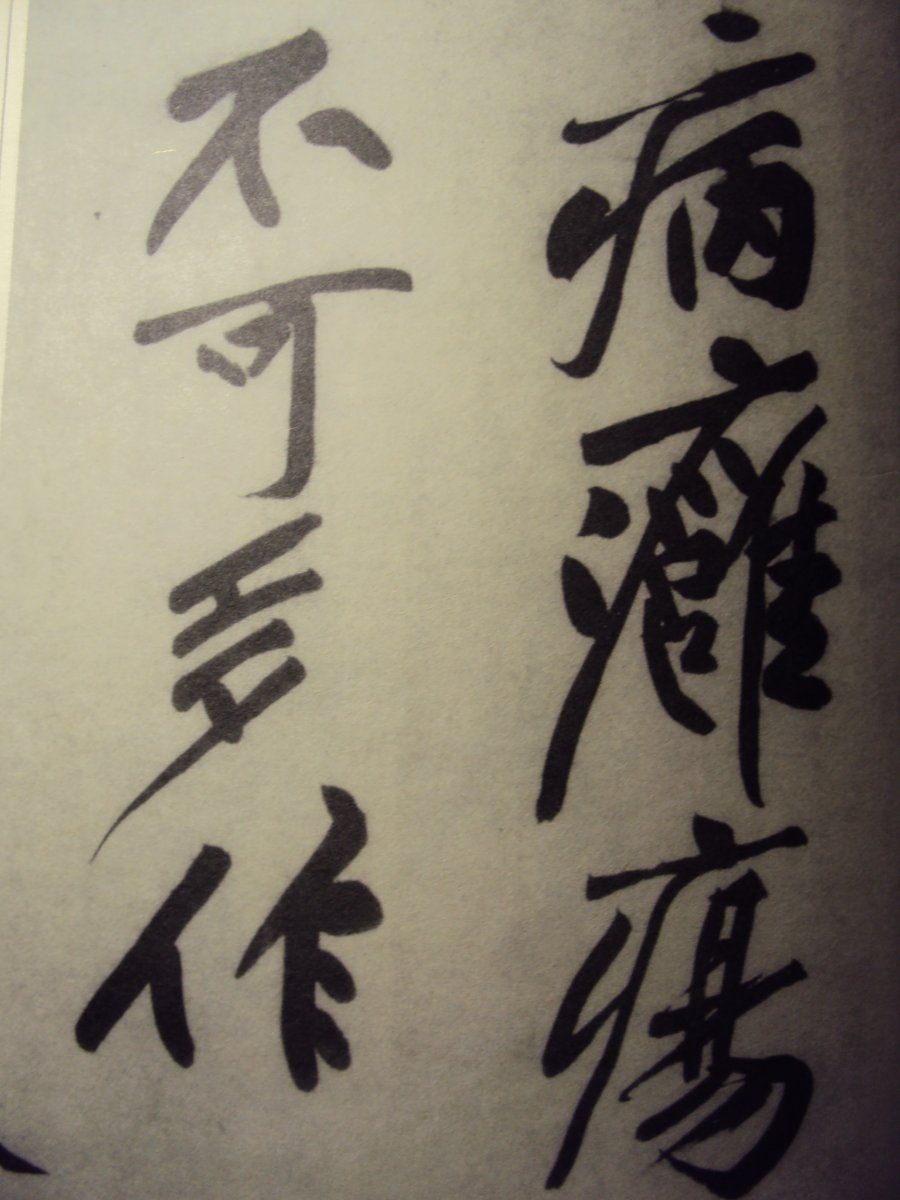 病癰瘍
不可多作